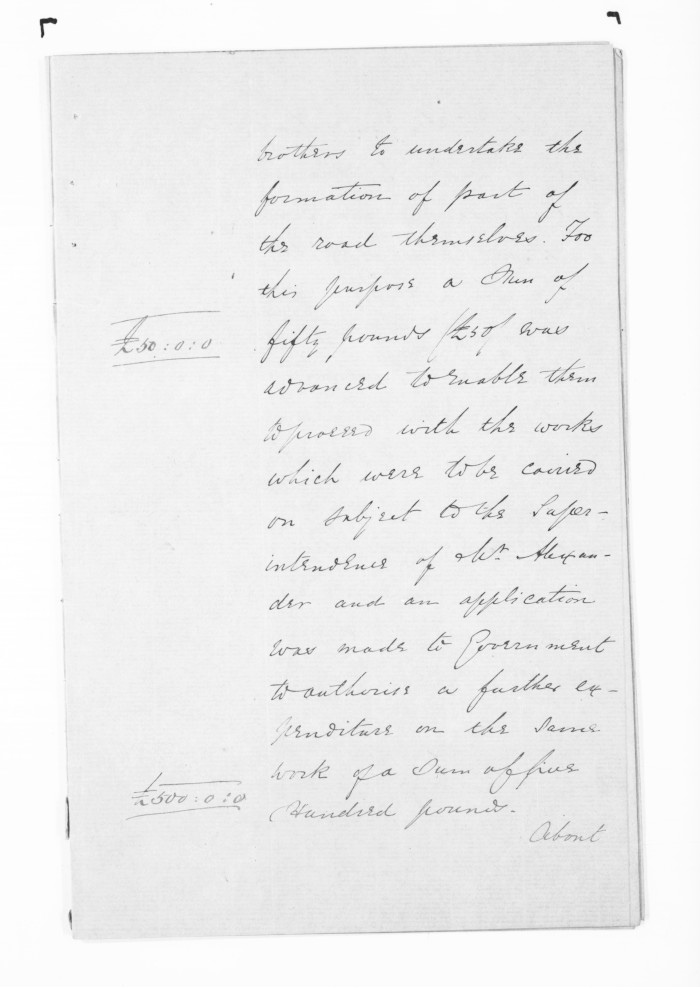 brothers to undertake the
formation of part of
the road themselves. For
this purpose a Sum of
£50:0:0
fifty pounds (£50) was
advanced to enable them
to proceed with the works
which were to be carried
on subject to the Super-
intendence of Mr. Alexan-
der and an application
was made to Government
to authorise a further ex-
penditure on the same
work of a Sum of five
£500:0:0
Hundred pounds.
About